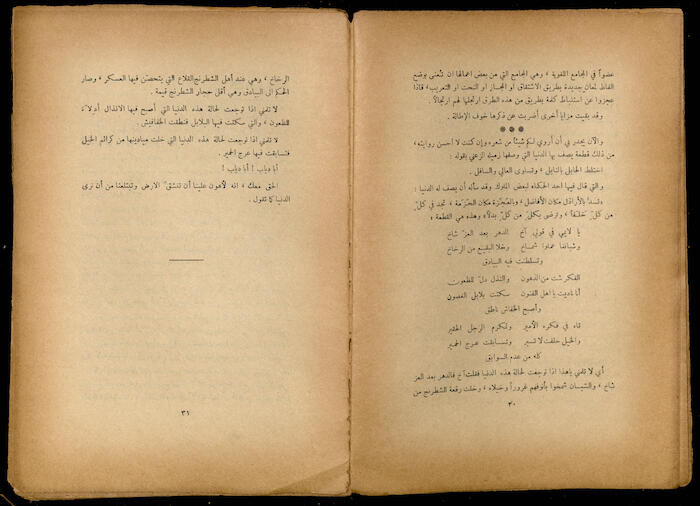 عضواً في المجامع اللغوية ، وهي المجامع التي من بعض اعمالها ان تُعنى بوضع
الفاظ لمعان جديدة بطريق الاشتقاق او المجاز او النحت او التعريب ، فاذا
عجزوا عن استنباط كلمة بطريق من هذه الطرق ارتجلها لهم ارتجالاً .
وقد بقيت مزايا أخرى أضربت عن ذكرها خوف الإطالة .
والآن يجدر بي أن أروي لكم شيئاً من شعره وإن كنت لا احسن روايته ،
من ذلك قطعة يصف بها الدنيا التي وصفها زميله الزعني بقوله :
اختلط الحابل بالنابل ، وتساوى العالي والسافل .
والتي قال فيها احد الحكماء لبعض الملوك وقد سأله أن يصف له الدنيا :
تُسدّ بالأراذل مكان الأفاضل ، وبالعَجَزة مكان الحَزَمة ، تجد في كلّ
من كلّ خَلَفاً ، وترضى بكلّ من كلّ بدلاً ، وهذه هي القطعة :
يا لايمي في قولي آخ الدهر بعد العز شاخ
وشباننا عملوا شماخ وخلا البقيع من الرخاخ
وتسلطنت فيه البيادق
الفكر شت من الذهون والنذل دلّ للظعون
أنا ناديت يا اهل الفنون سكتت بلابل الغصون
وأصبح الخفاش ناطق
تاه في فكره الأمير وتكرم الرجل الحقير
والخيل خلفت لا تسير وتسابقت عرج الحمير
كله من عدم السوابق
أي لا تلمني ياهذا اذا توجعت لحالة هذه الدنيا فقلت آخ فالدهر بعد العز
شاخ ، والشبان شمخوا بأنوفهم غروراً وخيلاء ، وخلت رقعة الشطرنج من
٣٠
الرخاخ ، وهي عند أهل الشطرنج القلاع التي يتحصّن فيها العسكر ، وصار
الحكم الى البيادق وهي أقل حجار الشطرنج قيمة .
لا تلمني اذا توجعت لحالة هذه الدنيا التي أصبح فيها الانذال أدلاء
للظعون ، والتي سكتت فيها البلابل فنطقت الخفافيش .
لا تلمني اذا توجعت لحالة هذه الدنيا التي خلت ميادينها من كرائم الخيل
فتسابقت فيها عرج الحمير .
أبا دياب ! أبا دياب !
الحق معك ، انه لأهون علينا أن تنشقّ الارض وتبتلعنا من أن نرى
الدنيا كما تقول .
٣١